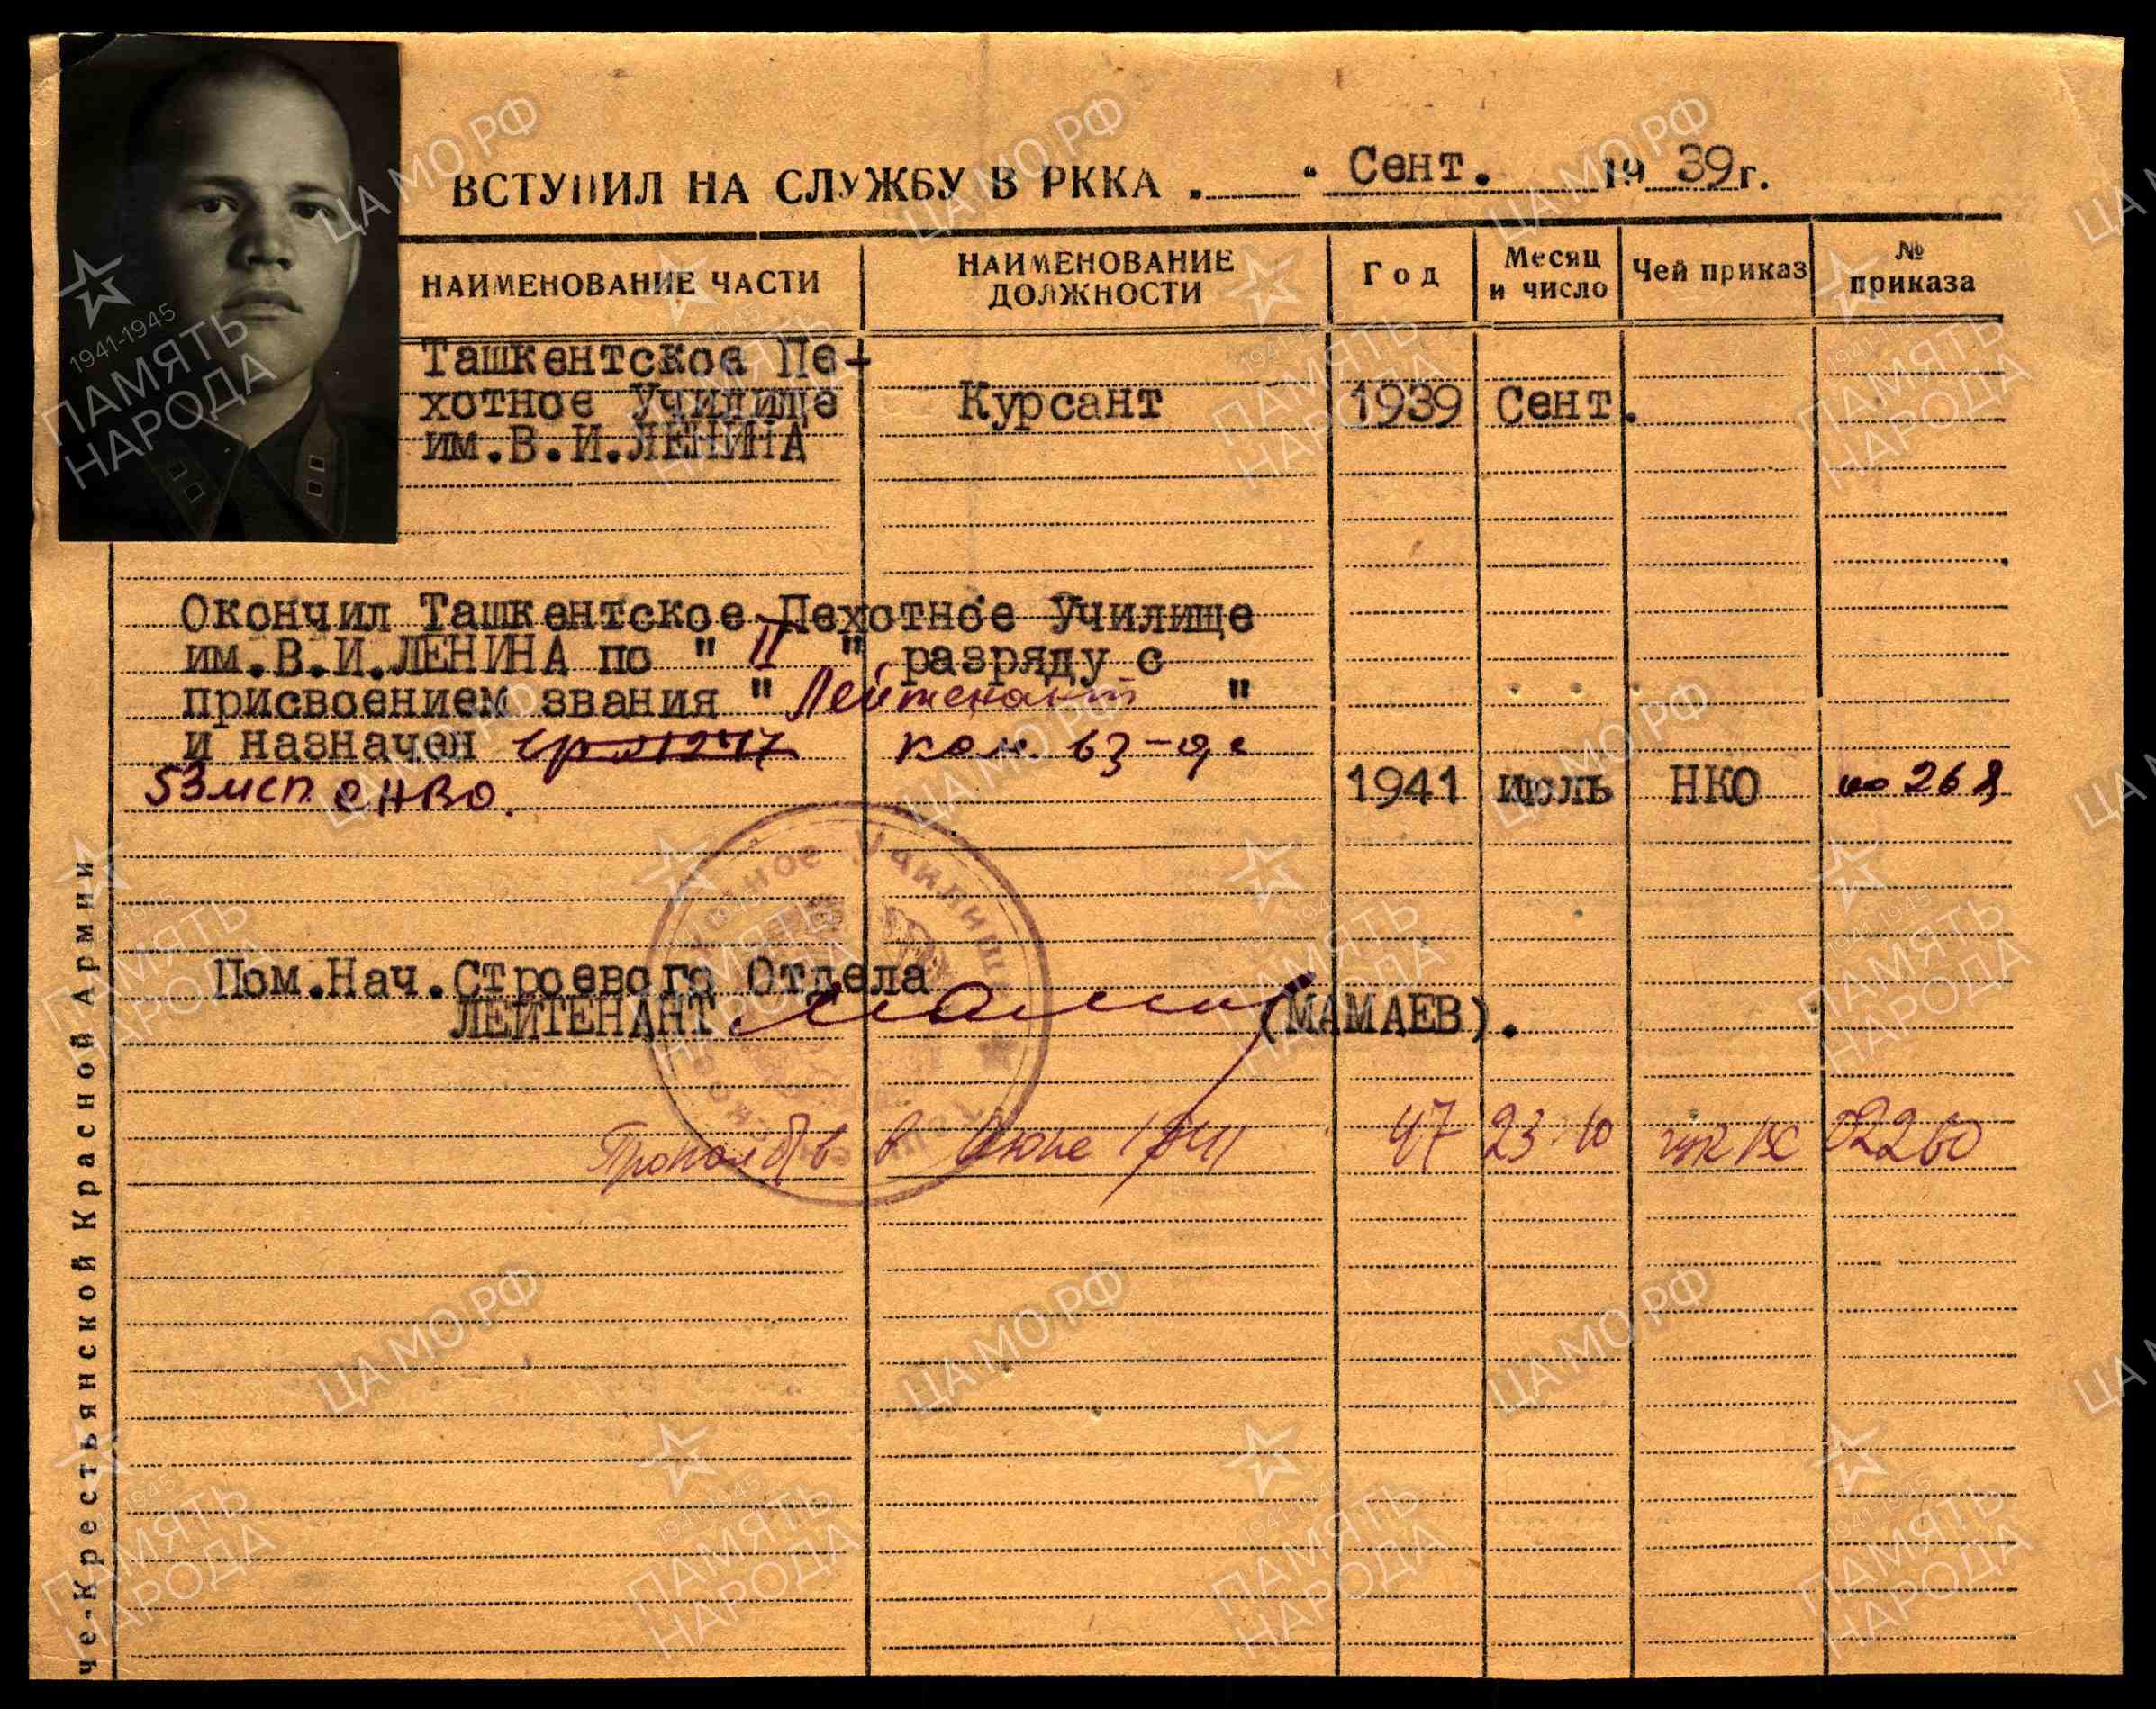 ВСТУПИЛ НА СЛУЖБУ В РККА „ “ Сент. 1939г.
НАИМЕНОВАНИЕ ЧАСТИ НАИМЕНОВАНИЕ ДОЛЖНОСТИ Год Месяц и число Чей приказ № приказа
Ташкентское Пе-
хотное Училище Курсант 1939 Сент.
им.В.И.ЛЕНИНА
Окончил Ташкентское Пехотное Училище
им.В.И.ЛЕНИНА по " II " разряду с
присвоением звания " Лейтенант "
и назначен ком. вз-да
53 мсп САВО. 1941 июль НКО № 268
Пом.Нач.Строевого Отдела
ЛЕЙТЕНАНТ (МАМАЕВ).
Пропал б/в в Июне 1941 47 23 10 02260
че-Крестьянской Красной Армии
ное Училищ
ЦА МО РФ
1941-1945
ПАМЯТЬ
НАРОДА